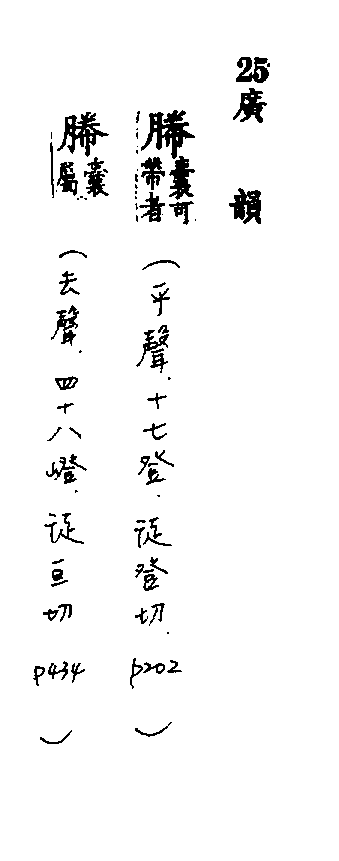 25廣韻
幐囊可帶者（平聲．十七登．徒登切．p202）
幐囊屬（去聲．四十八嶝．徒亘切p434）